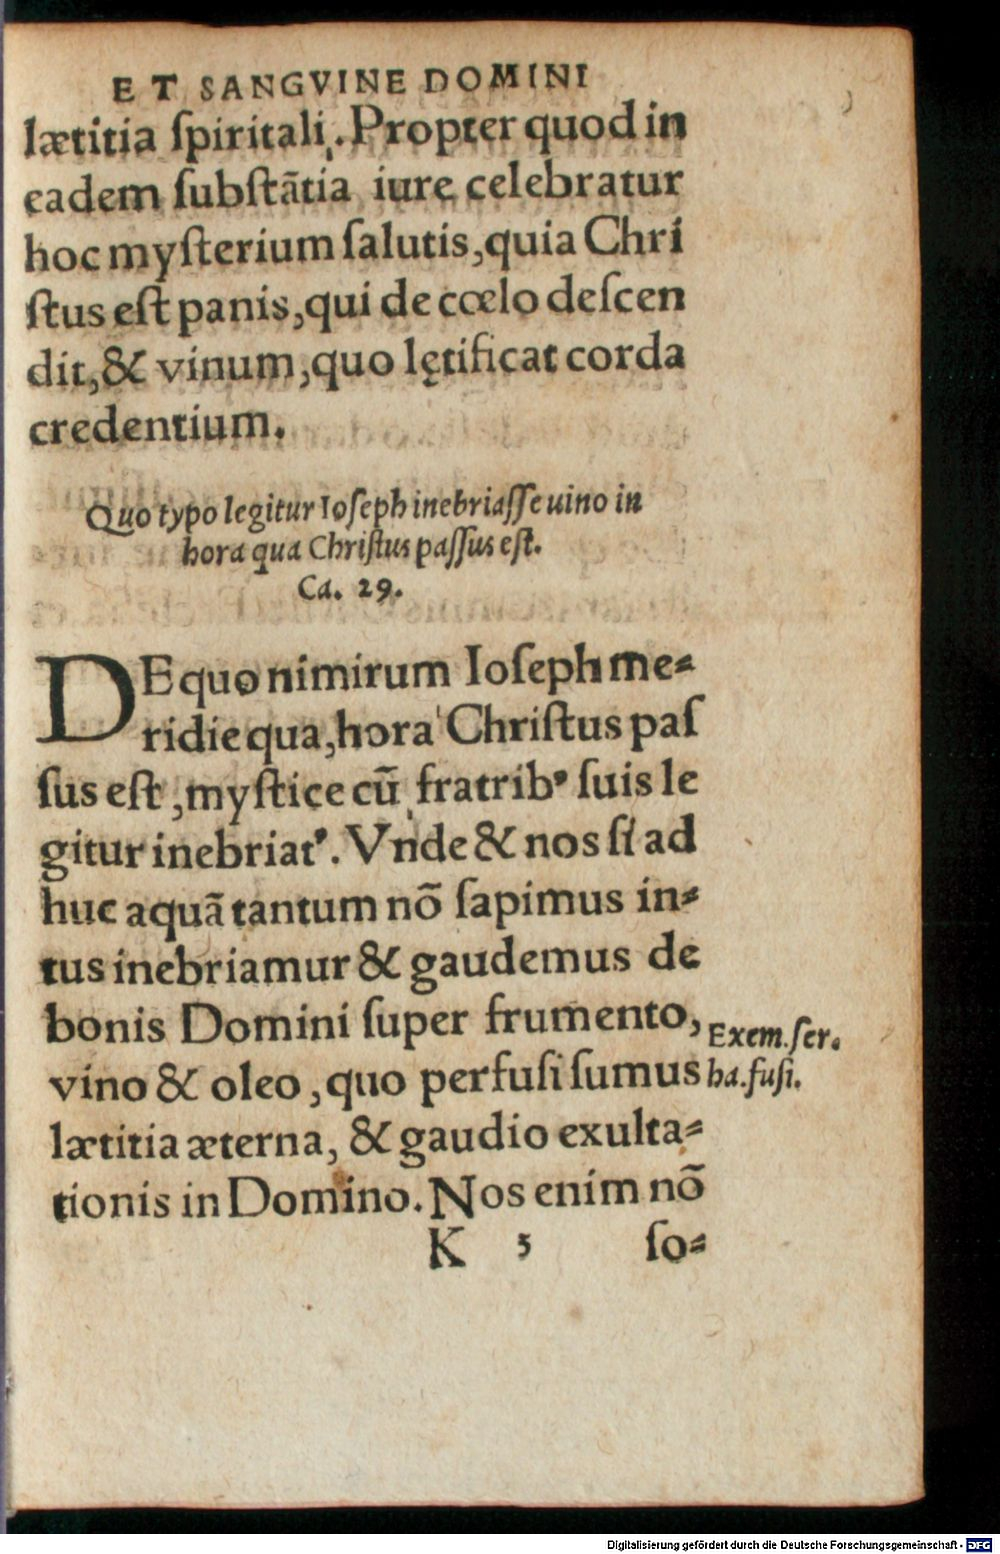 ET SANGVINE DOMINI
lætitia ſpiritali. Propter quod in
eadem ſubſtãtia iure celebratur
hoc myſterium ſalutis, quia Chri
ſtus eſt panis, qui de cœlo deſcen
dit, & vinum, quo lętificat corda
credentium.
Quo typo legitur Ioſeph inebriaſſe uino in
hora qua Chriſtus paſſus eſt.
Ca. 29.
DE quo nimirum Ioſeph me⸗
ridie qua, hora Chriſtus paſ
ſus eſt, myſtice cũ fratribꝰ ſuis le
gitur inebriatꝰ. Vnde & nos ſi ad
huc aquã tantum nõ ſapimus in⸗
tus inebriamur & gaudemus de
bonis Domini ſuper frumento,
vino & oleo, quo perfuſi ſumus
lætitia æterna, & gaudio exulta⸗
tionis in Domino. Nos enim nõ
Exem. ſer.
ha. fuſi.
K 5 ſo⸗
Digitalisierung gefördert durch die Deutsche Forschungsgemeinschaft - DFG